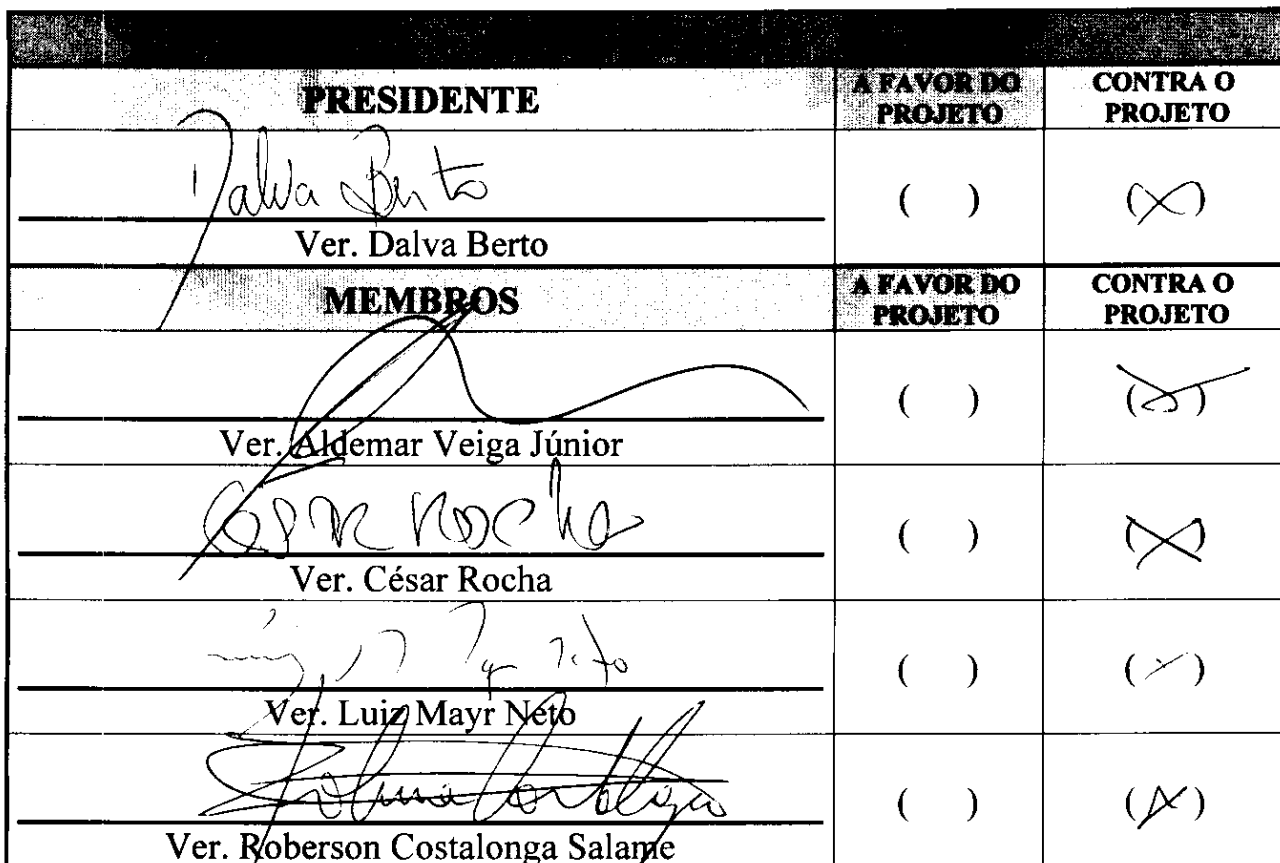 PRESIDENTE A FAVOR DO PROJETO CONTRA O PROJETO
Dalva Berto
Ver. Dalva Berto ( ) (X)
MEMBROS A FAVOR DO PROJETO CONTRA O PROJETO
Ver. Aldemar Veiga Júnior ( ) (X)
Cesar Rocha
Ver. César Rocha ( ) (X)
Ver. Luiz Mayr Neto ( ) (X)
Ver. Roberson Costalonga Salame ( ) (X)